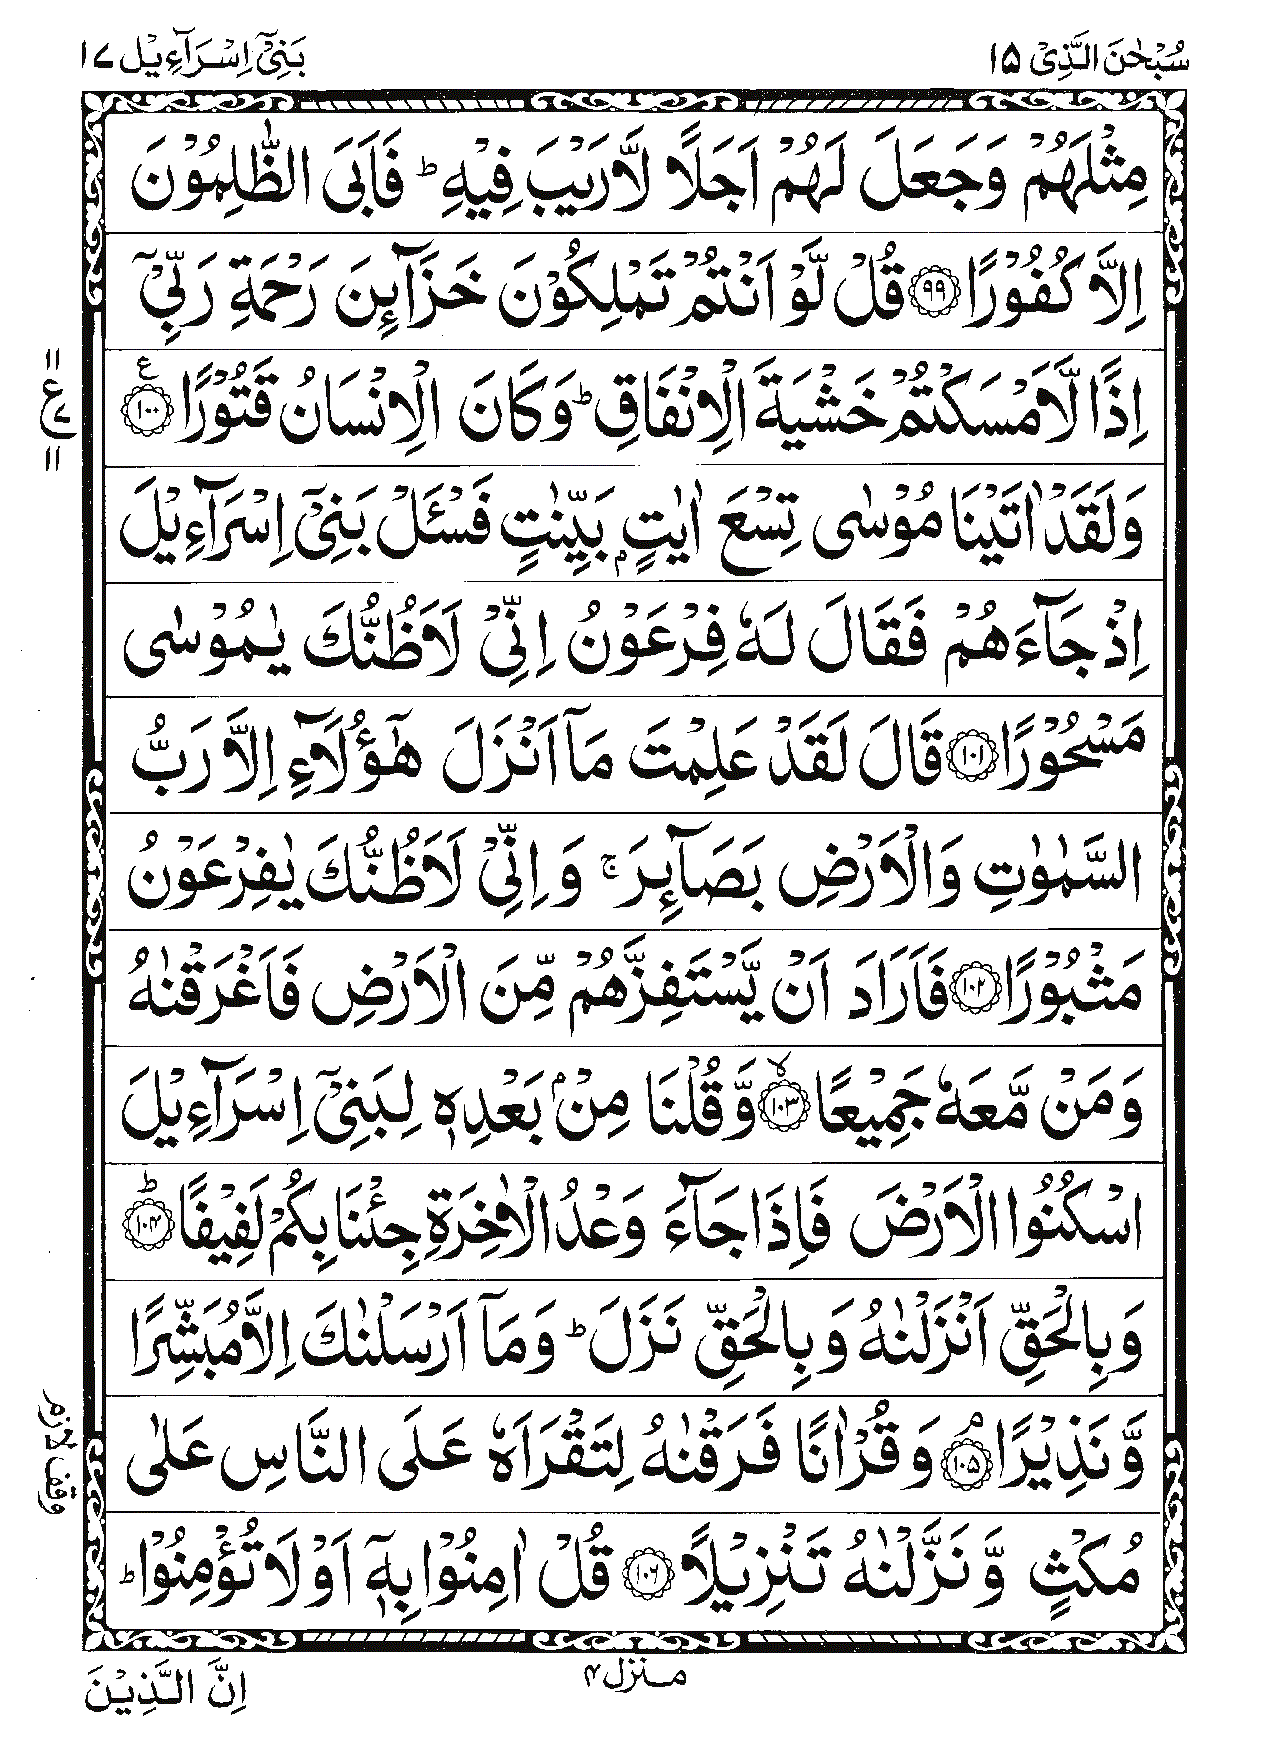 سُبْحٰنَ الَّذِیْ ١٥
بَنِیْۤ اِسْرَآءِیْل ١٧
مِثْلَهُمْ وَجَعَلَ لَهُمْ اَجَلًا لَّا رَيْبَ فِيْهِ ؕ فَاَبَى الظّٰلِمُوْنَ
اِلَّا كُفُوْرًا ﴿۹۹﴾ قُلْ لَّوْ اَنْتُمْ تَمْلِكُوْنَ خَزَآئِنَ رَحْمَةِ رَبِّیْۤ
اِذًا لَّاَمْسَكْتُمْ خَشْيَةَ الْاِنْفَاقِ ؕ وَكَانَ الْاِنْسَانُ قَتُوْرًا ﴿۱۰۰﴾ ع
ع ١١ ٧ ١١
وَلَقَدْ اٰتَيْنَا مُوْسٰى تِسْعَ اٰيٰتٍۭ بَيِّنٰتٍ فَسْئَلْ بَنِیْۤ اِسْرَآءِيْلَ
اِذْ جَآءَهُمْ فَقَالَ لَهٗ فِرْعَوْنُ اِنِّیْ لَاَظُنُّكَ يٰمُوْسٰى
مَسْحُوْرًا ﴿۱۰۱﴾ قَالَ لَقَدْ عَلِمْتَ مَاۤ اَنْزَلَ هٰۤؤُلَآءِ اِلَّا رَبُّ
السَّمٰوٰتِ وَالْاَرْضِ بَصَآئِرَ ۚ وَ اِنِّیْ لَاَظُنُّكَ يٰفِرْعَوْنُ
مَثْبُوْرًا ﴿۱۰۲﴾ فَاَرَادَ اَنْ يَّسْتَفِزَّهُمْ مِّنَ الْاَرْضِ فَاَغْرَقْنٰهُ
وَمَنْ مَّعَهٗ جَمِيْعًا ﴿۱۰۳﴾ ۙ وَّقُلْنَا مِنْۢ بَعْدِهٖ لِبَنِیْۤ اِسْرَآءِيْلَ
اسْكُنُوا الْاَرْضَ فَاِذَا جَآءَ وَعْدُ الْاٰخِرَةِ جِئْنَا بِكُمْ لَفِيْفًا ﴿۱۰۴﴾ ؕ
وَبِالْحَقِّ اَنْزَلْنٰهُ وَبِالْحَقِّ نَزَلَ ؕ وَمَاۤ اَرْسَلْنٰكَ اِلَّا مُبَشِّرًا
وَّ نَذِيْرًا ﴿۱۰۵﴾ ۘ وَ قُرْاٰنًا فَرَقْنٰهُ لِتَقْرَاَهٗ عَلَى النَّاسِ عَلٰى
وقف لازم
مُكْثٍ وَّ نَزَّلْنٰهُ تَنْزِيْلًا ﴿۱۰۶﴾ قُلْ اٰمِنُوْا بِهٖۤ اَوْ لَا تُؤْمِنُوْا ؕ
منزل ۴
اِنَّ الَّذِيْنَ